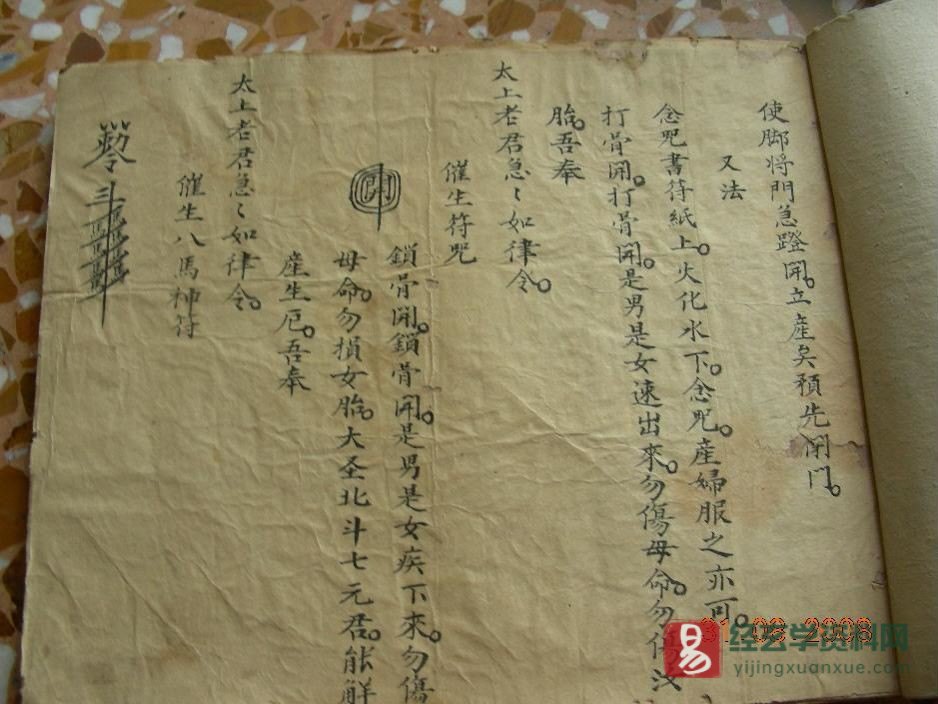 使脚将門急蹬開。立產矣預先閉門。
又法
念咒書符紙上。火化水下。念咒。産婦服之亦可。
打骨開。打骨開。是男是女速出來。勿傷母命。勿
胎。吾奉
太上老君急〻如律令。
催生符咒
鎖骨開。鎖骨開。是男是女疾下來。勿傷
母命。勿損女胎。大圣北斗七元君。能解
産生厄。吾奉
太上老君急〻如律令。
催生八馬神符
2008
易
经玄学资料网
yijingxuanxue.com